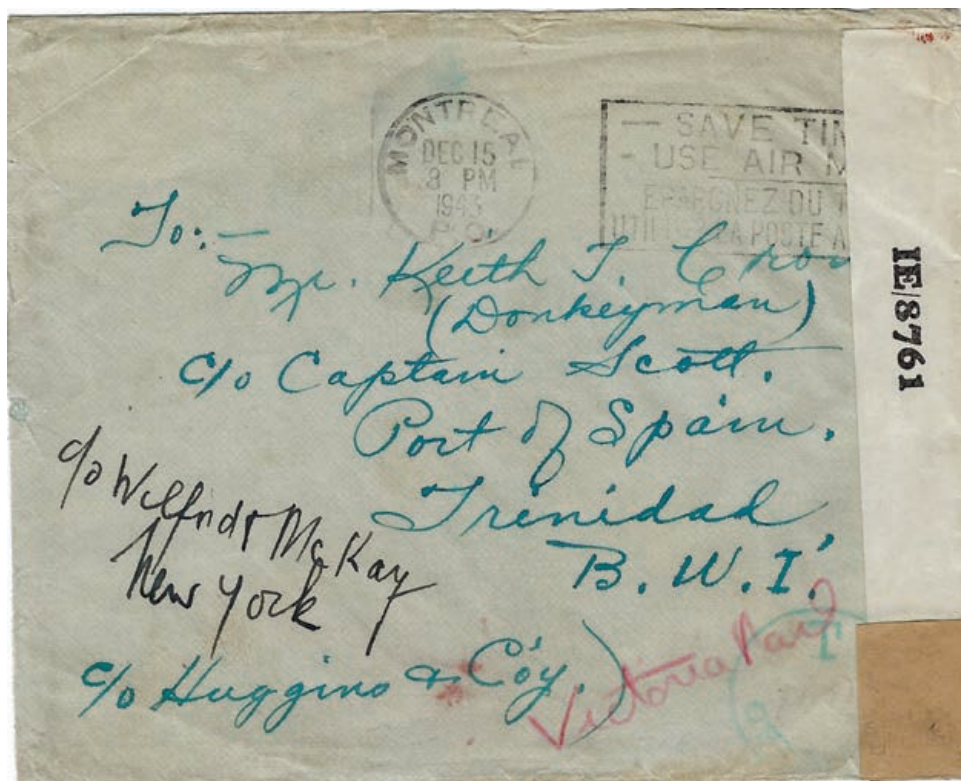 MONTREAL
DEC 15
8 PM
1943
P.Q.
— SAVE TIM
- USE AIR M
EPARGNEZ DU T
UTILISEZ LA POSTE A
To:—
Mr. Keith T. Crow
(Donkeyman)
c/o Captain Scott.
Port of Spain.
Trinidad
B. W. I.
c/o Wilfrid & McKay
New York
c/o Huggins & Coy.)
Victoria Park
IE/8761